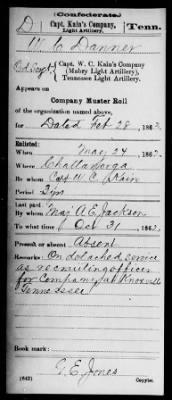 (Confederate.)
D Capt. Kain's Company, Light Artillery. Tenn.
W. C. Danner
Ord Sergt, Capt. W. C. Kain's Company (Mabry Light Artillery), Tennessee Light Artillery.
Appears on
Company Muster Roll
of the organization named above,
for Dated Feb 28, 1863.
Enlisted:
When May 24, 1862.
Where Chattanooga
By whom Capt W. C. Kain
Period 3 yrs
Last paid:
By whom Maj A. E. Jackson
To what time Oct 31, 1862.
Present or absent Absent
Remarks: On detached service
as recruiting officer
for Company at Knoxville
Tennessee
Book mark:
G. E. Jones
(642) Copyist.